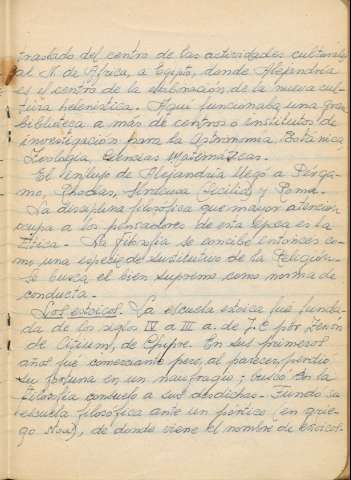 traslado del centro de las actividades culturales
al N. de África, a Egipto, donde Alejandría
es el centro de la elaboración de la nueva cul-
tura helenística. Aquí funcionaba una gran
biblioteca a más de centros o institutos de
investigación para la Astronomía, Botánica
Zoología, Ciencias Matemáticas.
El influjo de Alejandría llegó a Pérga-
mo, Rhodas, Siracusa (Sicilia) y Roma.
La disciplina filosófica que mayor atención
ocupa a los pensadores de esta época es la
Ética. La filosofía se concibe entonces co-
mo una especie de sustitutivo de la Religión.
Se busca el bien supremo como norma de
conducta.
Los estoicos. La escuela estoica fué funda-
da de los siglos IV a III a. de J.C. por Zenón
de Citium, de Chipre. En sus primeros
años fué comerciante pero, al parecer, perdió
su fortuna en un naufragio; buscó en la
Filosofía consuelo a sus desdichas. Fundó su
escuela filosófica ante un pórtico (en grie-
go Stoa), de donde viene el nombre de estoicos.